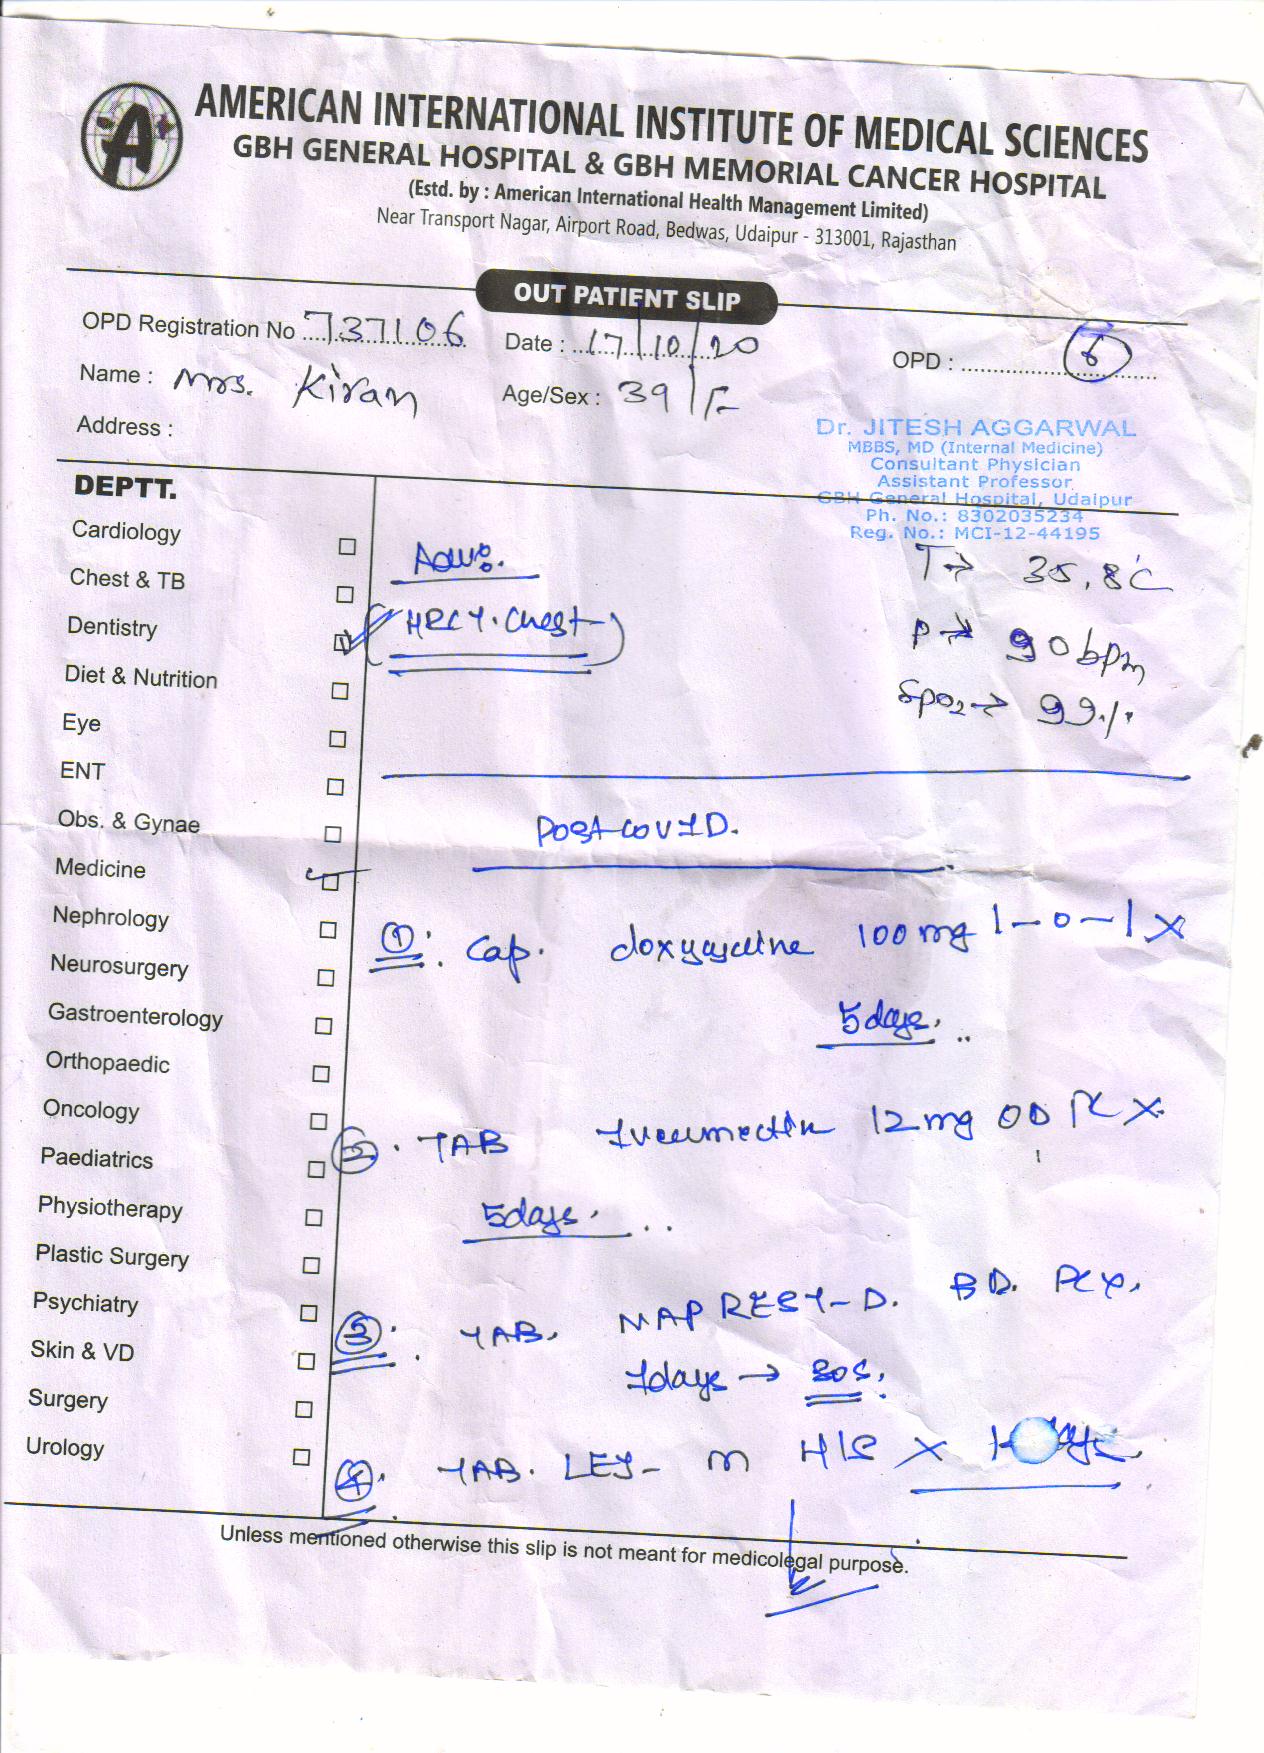 AMERICAN INTERNATIONAL INSTITUTE OF MEDICAL SCIENCES
GBH GENERAL HOSPITAL & GBH MEMORIAL CANCER HOSPITAL
(Estd. by : American International Health Management Limited)
Near Transport Nagar, Airport Road, Bedwas, Udaipur - 313001, Rajasthan
OUT PATIENT SLIP
OPD Registration No 737106 Date : 17/10/20 OPD : 6
Name : Mrs. Kiran Age/Sex : 39/F
Address :
Dr. JITESH AGGARWAL
MBBS, MD (Internal Medicine)
Consultant Physician
Assistant Professor
GBH General Hospital, Udaipur
Ph. No.: 8302035234
Reg. No.: MCI-12-44195
DEPTT.
Cardiology
Chest & TB
Dentistry
Diet & Nutrition
Eye
ENT
Obs. & Gynae
Medicine
Nephrology
Neurosurgery
Gastroenterology
Orthopaedic
Oncology
Paediatrics
Physiotherapy
Plastic Surgery
Psychiatry
Skin & VD
Surgery
Urology
T → 35.8°C
P → 90 bpm
SpO2 → 99%
Adv:
(HRCT. Chest)
POST COVID.
1. Cap. doxycycline 100 mg 1-0-1 X
5 days.
2. TAB Ivermectin 12 mg OD PC X
5 days.
3. TAB. NAPREST-D. BD. PC X.
7 days → SOS.
4. TAB. LEJ- M H/S X
Unless mentioned otherwise this slip is not meant for medicolegal purpose.